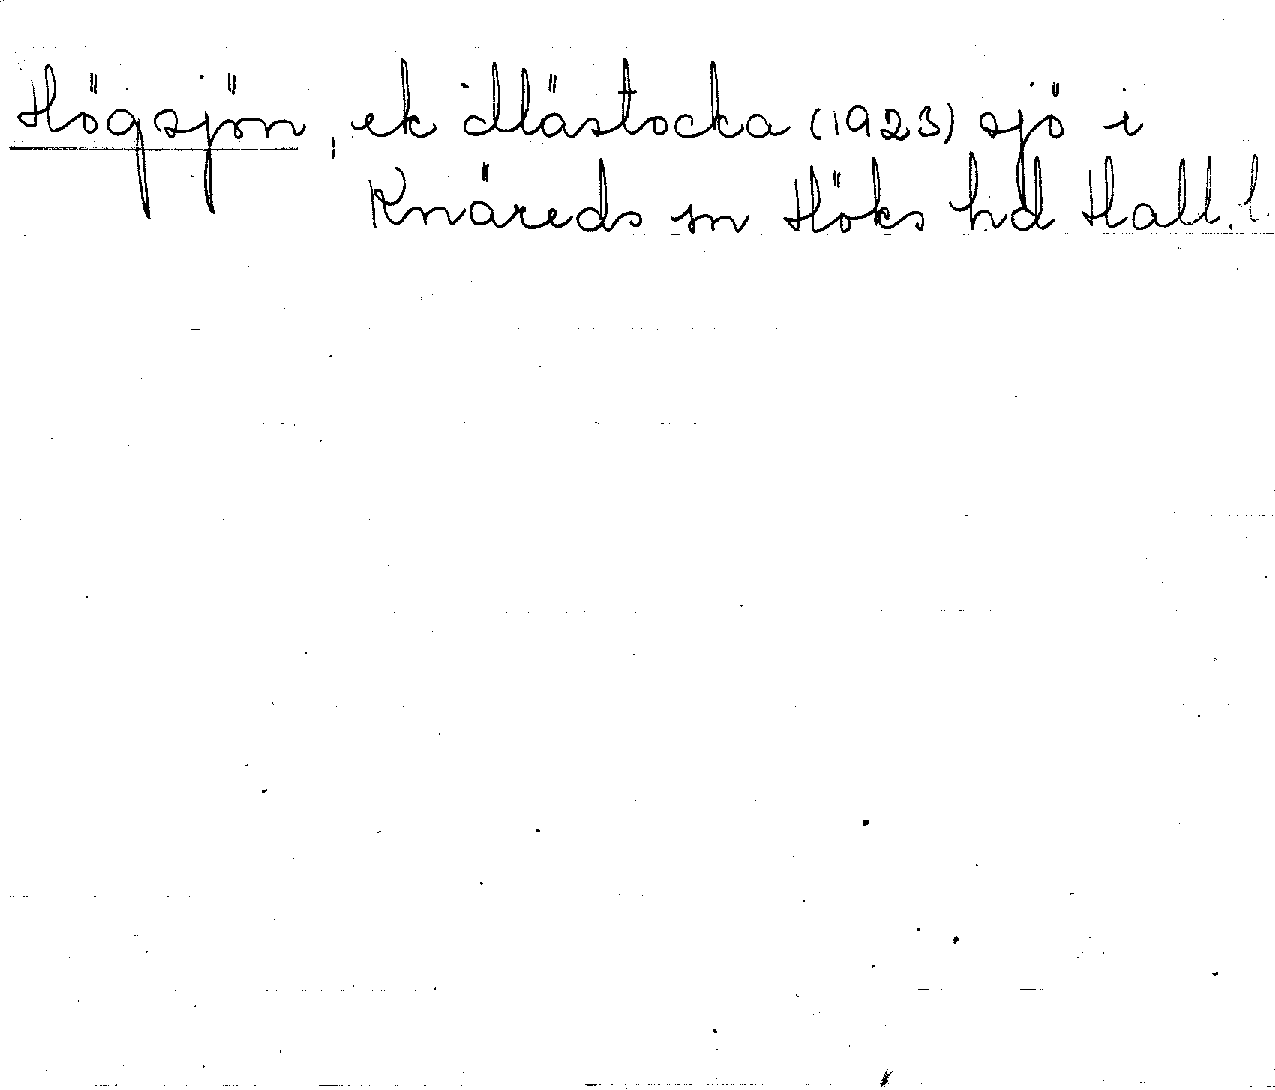 Högsjön, ek Mästocka (1923) sjö i
Knäreds sn Höks hd Hall. l.